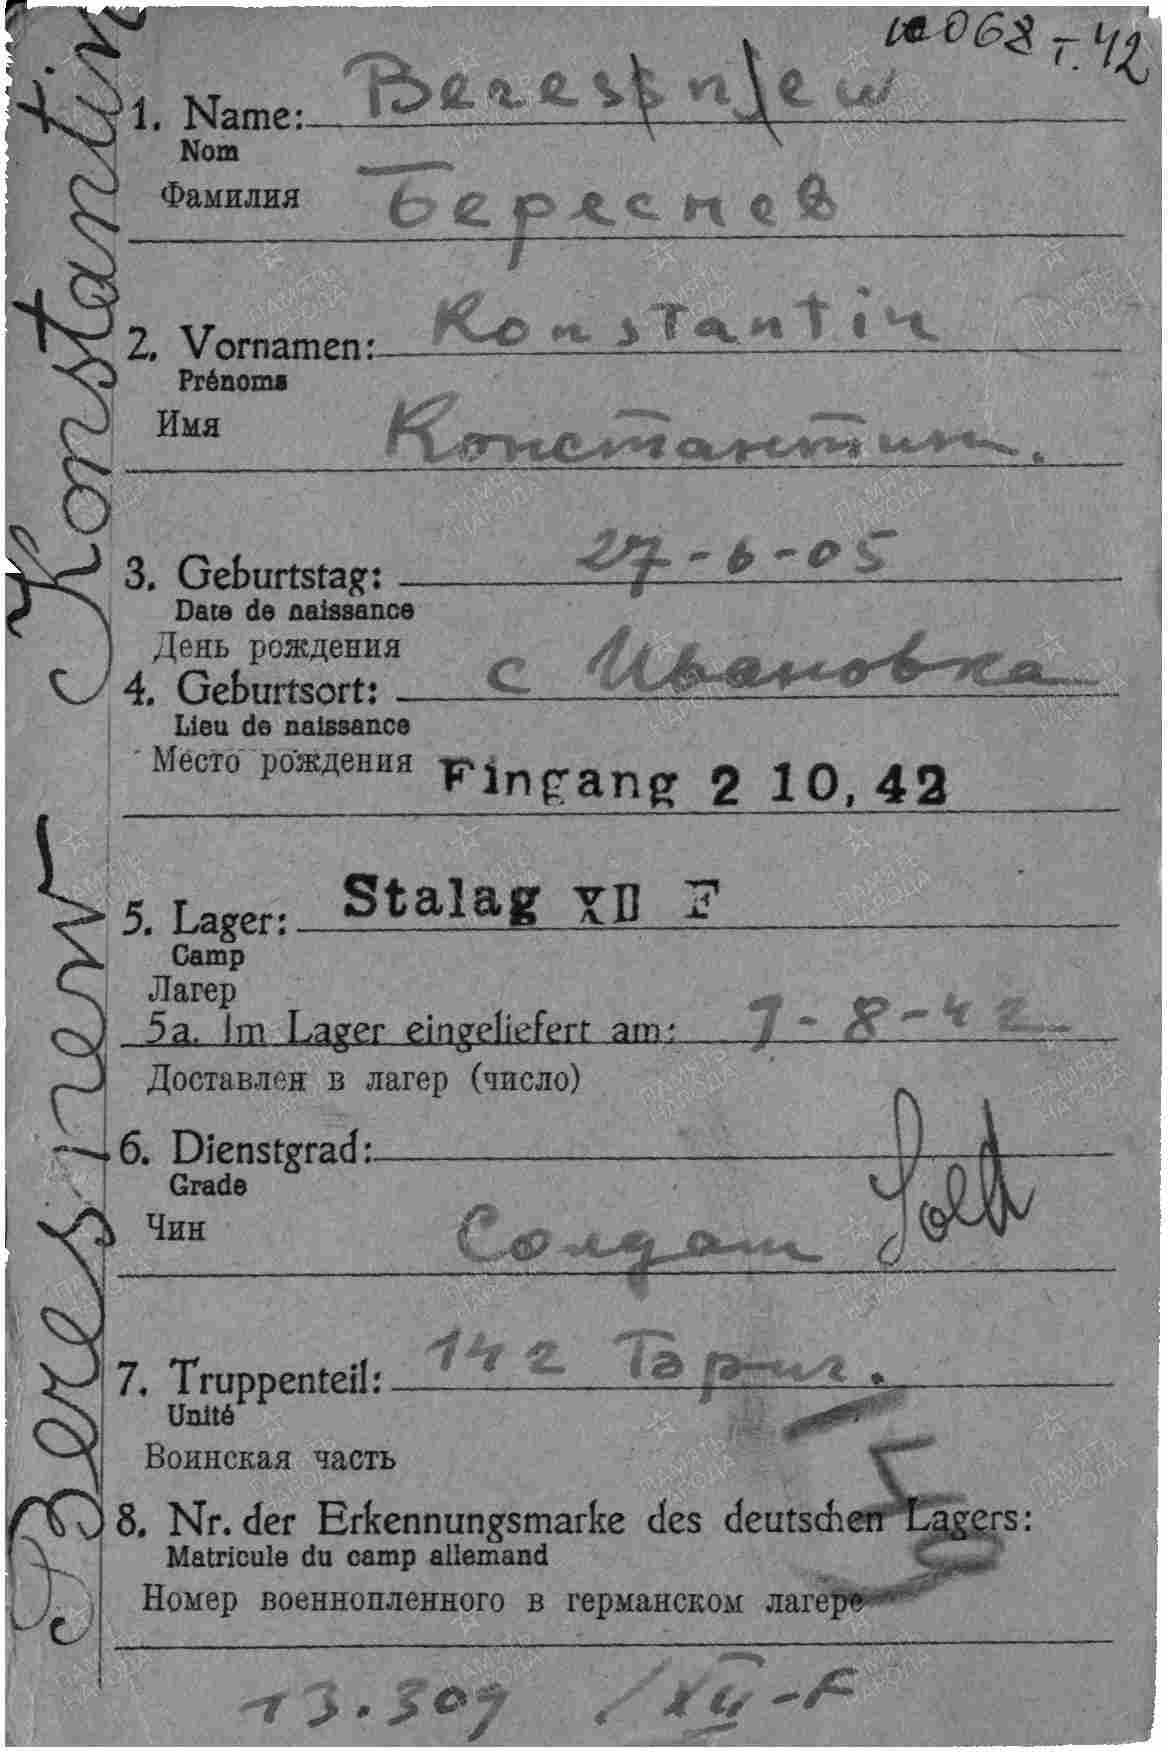 068 т. 42
Beressnjew
1. Name:
Nom
Фамилия
Береснев
Konstantin
2. Vornamen:
Prénoms
Имя
Константин.
27-6-05
3. Geburtstag:
Date de naissance
День рождения
с Ивановка
4. Geburtsort:
Lieu de naissance
Место рождения
Eingang 2 10. 42
Stalag XII F
5. Lager:
Camp
Лагер
5a. Im Lager eingeliefert am: 9-8-42
Доставлен в лагер (число)
6. Dienstgrad:
Grade
Чин
Солдат Sold
142
7. Truppenteil:
Unité
Воинская часть
8. Nr. der Erkennungsmarke des deutschen Lagers:
Matricule du camp allemand
Номер военнопленного в германском лагере
13.309 / XII-F
Beresnew Konstantin
ПАМЯТЬ НАРОДА